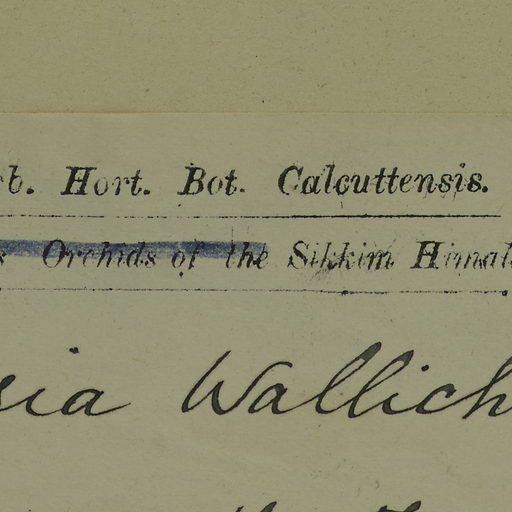 rb. Hort. Bot. Calcuttensis.
s Orchids of the Sikkim Himal
sia Wallich